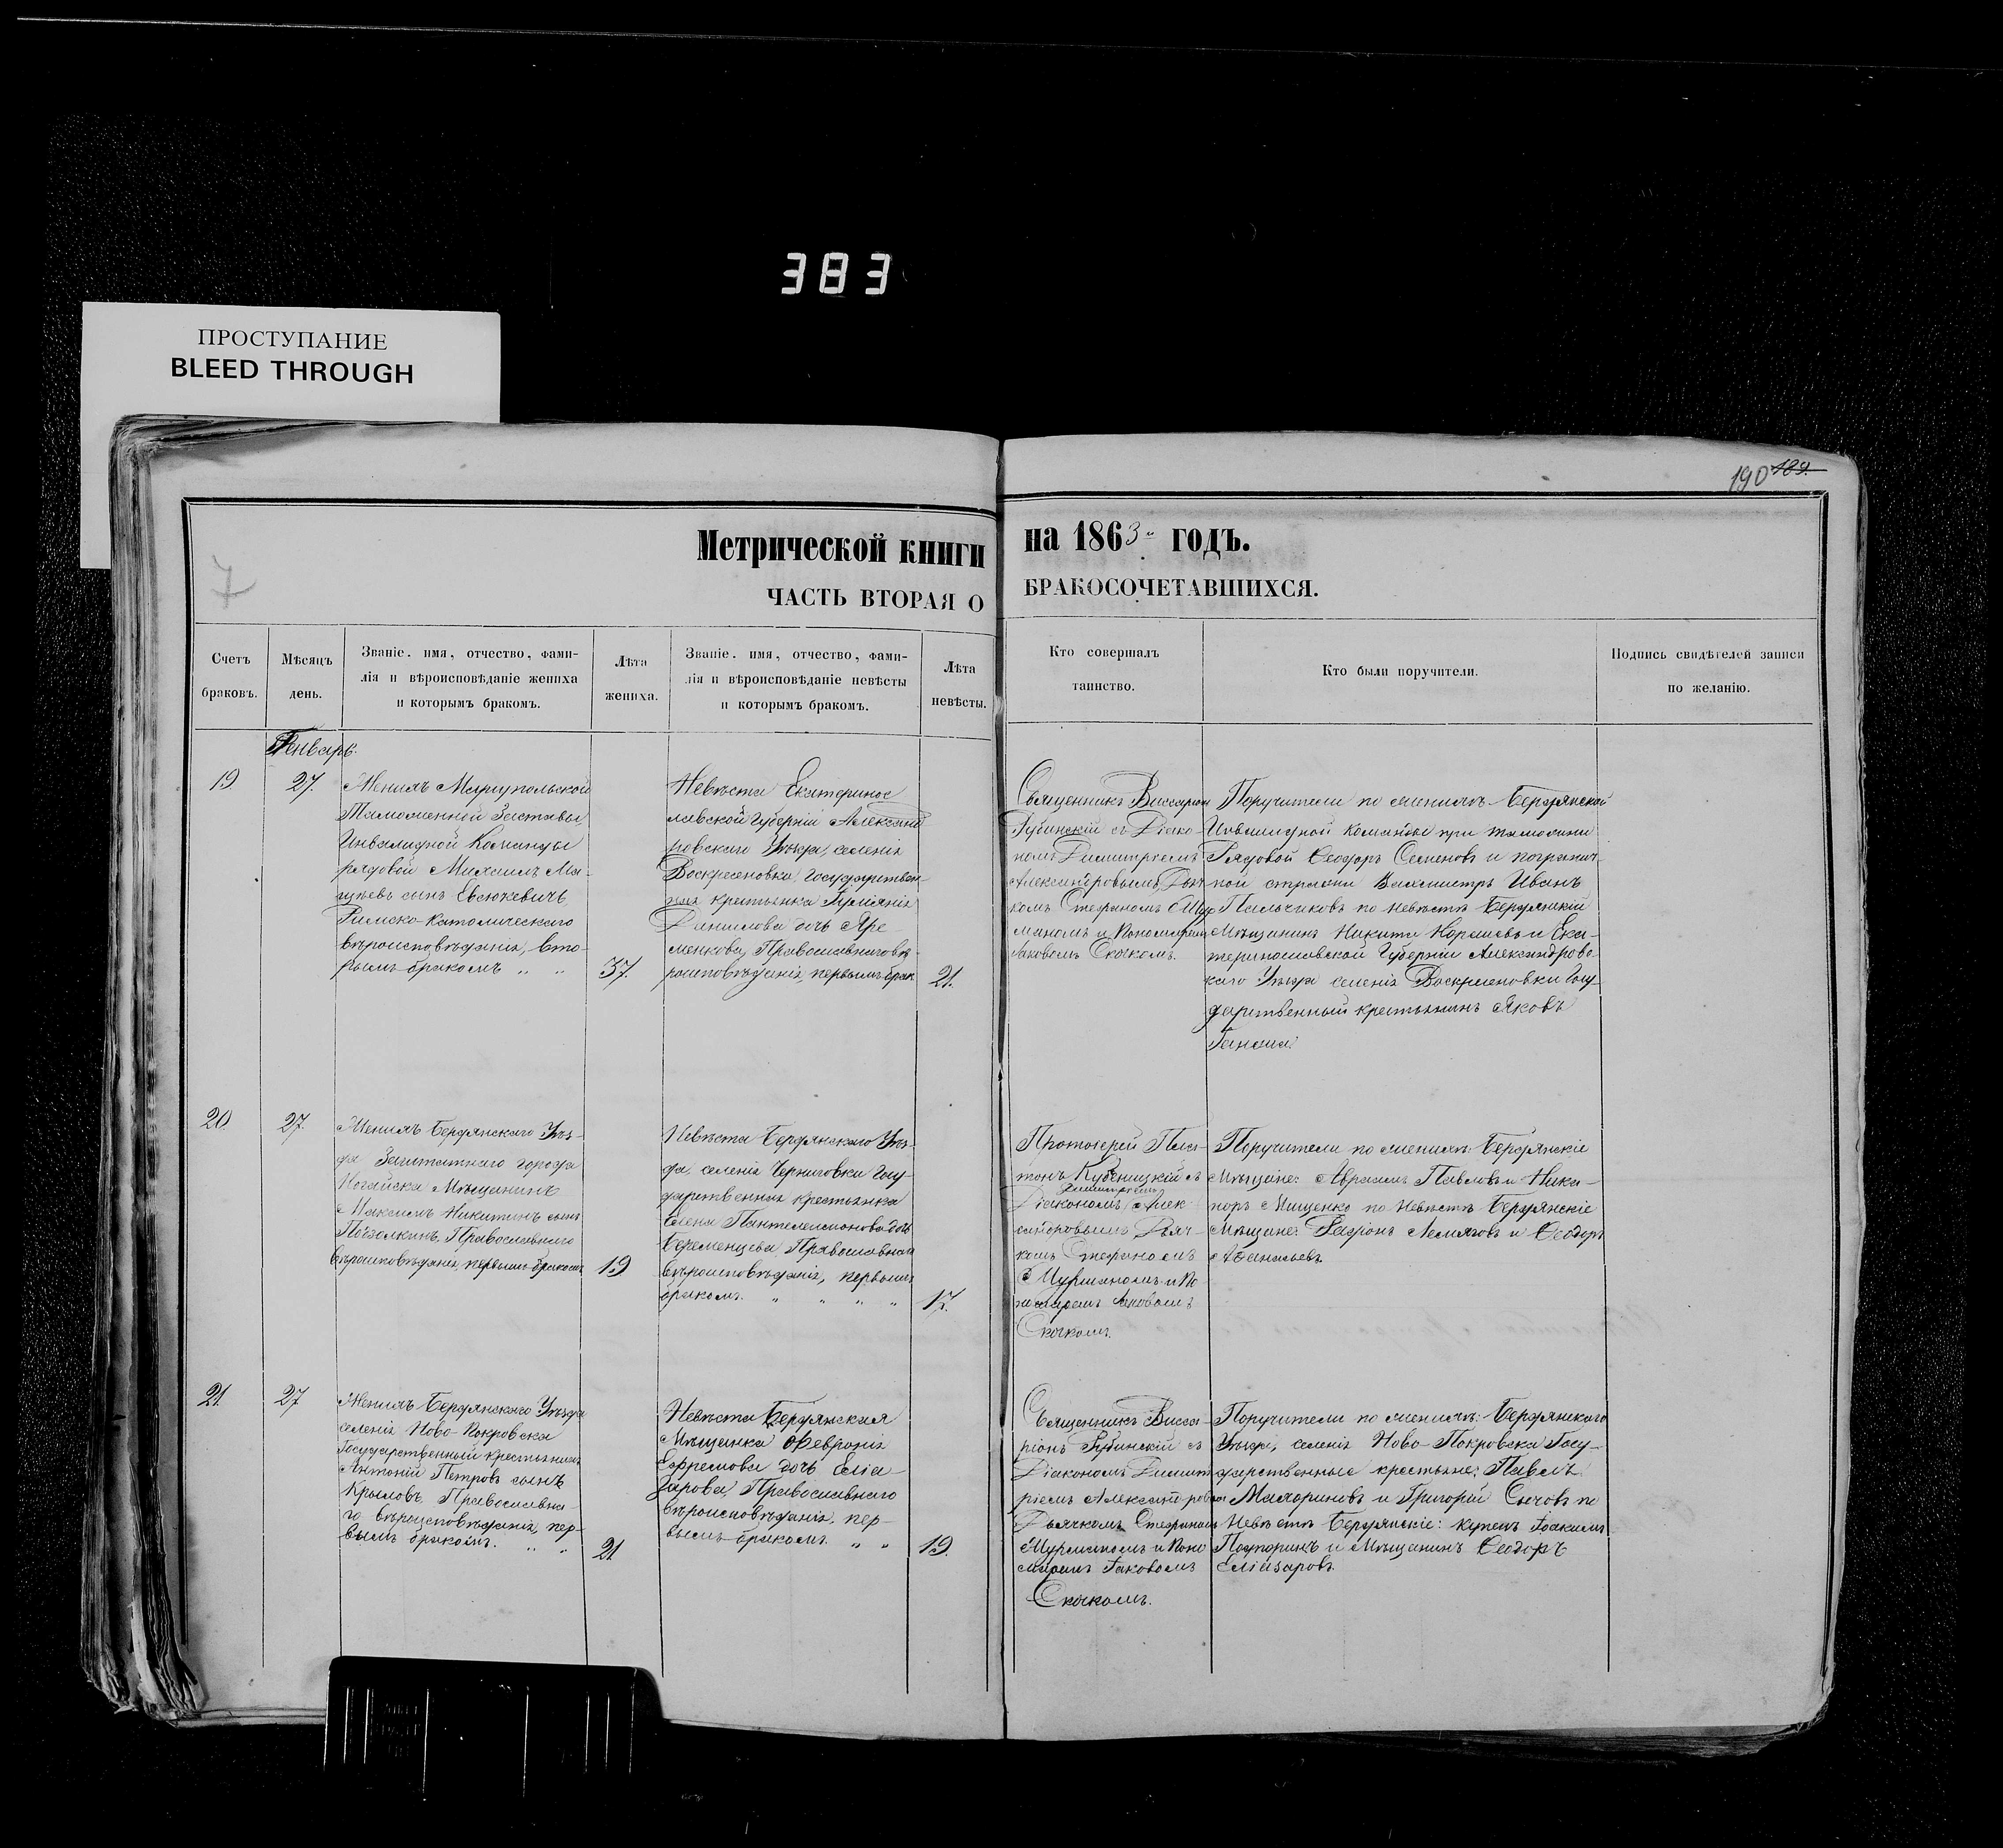 383
ПРОСТУПАНИЕ
BLEED THROUGH
190 189.
7
Метрической книги на 1863 годъ.
ЧАСТЬ ВТОРАЯ О БРАКОСОЧЕТАВШИХСЯ.
Счетъ
браковъ.
Мѣсяцъ
день.
Званіе. имя, отчество, фами-
лія и вѣроисповѣданіе жениха
и которымъ бракомъ.
Лѣта
жениха.
Званіе. имя, отчество, фами-
лія и вѣроисповѣданіе невѣсты
и которымъ бракомъ.
Лѣта
невѣсты.
Кто совершалъ
таинство.
Кто были поручители.
Подпись свидѣтелей записи
по желанію.
Генварь.
19
27.
Женихъ Маріупольской
Таможенной Заставы
Инвалидной Команды
рядовой Михаилъ Ма-
цѣевъ сынъ Евсюкевичъ
Римско-католическаго
вѣроисповѣданія, вто-
рымъ бракомъ „ „
37.
Невѣста Екатеринос
лавской Губерніи Александ
ровскаго Уѣзда, селенія
Воскресеновки, Государствен-
ная крестьянка
Данилова дочь Яре-
менкова, Православнаго вѣ
роисповѣданія, первымъ брак
21.
Священникъ Виссаріон
Рубинскій съ Діако-
номъ Димитріемъ
Александровымъ, Дьяч
комъ Стефаномъ Шур
маномъ и Пономаремъ
Іаковомъ Скочкомъ.
Поручители по женихѣ Бердянской
Инвалидной Команды при таможни
Рядовой Феодоръ Семеновъ и погранич-
ной стражи Вахмистръ Иванъ
Пальчиковъ по невѣстѣ Бердянскій
Мѣщанинъ Никита Корашевъ и Ека-
теринославской Губерніи Александровс-
каго Уѣзда селенія Воскресеновки Госу-
дарственный крестьянинъ Яковъ
20
27.
Женихъ Бердянскаго Уѣз-
да Заштатнаго города
Ногайска Мѣщанинъ
Максимъ Никитинъ сынъ
Православнаго
вѣроисповѣданія, первымъ бракомъ
19
Невѣста Бердянскаго Уѣз-
да, селенія Черниговки Госу-
дарственная крестьянка
Елена Пантелеимонова дочь
Беременцева, Православнаго
вѣроисповѣданія, первымъ
бракомъ. „ „ „ „
17.
Протоіерей Пла-
тонъ Кубеницкій съ
Димитріемъ
Діакономъ Алек-
сандровымъ Дьяч-
комъ Стефаномъ
Шурманомъ и По
номаремъ Іаковомъ
Скочкомъ.
Поручители по женихѣ Бердянскіе
Мѣщане: Авраамъ Павловъ и Ника-
норъ Мищенко по Невѣстѣ Бердянскіе
Мѣщане: Лемяговъ и Феодоръ
Афанасьевъ.
21
27
Женихъ Бердянскаго Уѣзда
селенія Ново-Покровска
Государственный крестьянинъ
Антоній Петровъ сынъ
Крыловъ, Православна-
го вѣроисповѣданія, пер-
вымъ бракомъ. „ „
21
Невѣста Бердянская
Мѣщанка Февронія
Ефремова дочь Еліа-
зарова, Православнаго
вѣроисповѣданія. пер-
вымъ бракомъ. „ „
19.
Священникъ Висса-
ріонъ Рубинскій съ
Діакономъ Димит
ріемъ Александровым
Дьячкомъ Стефаномъ
Шурманомъ и Поно
маремъ Іаковомъ
Скочкомъ.
Поручители по женихѣ: Бердянскаго
Уѣзда, селенія Ново-Покровска Госу-
дарственные крестьяне: Павелъ
Махориновъ и Григорій Сычовъ по
Невѣстѣ Бердянскіе: купецъ Іоакимъ
и Мѣщанинъ Феодоръ
Еліазаровъ.